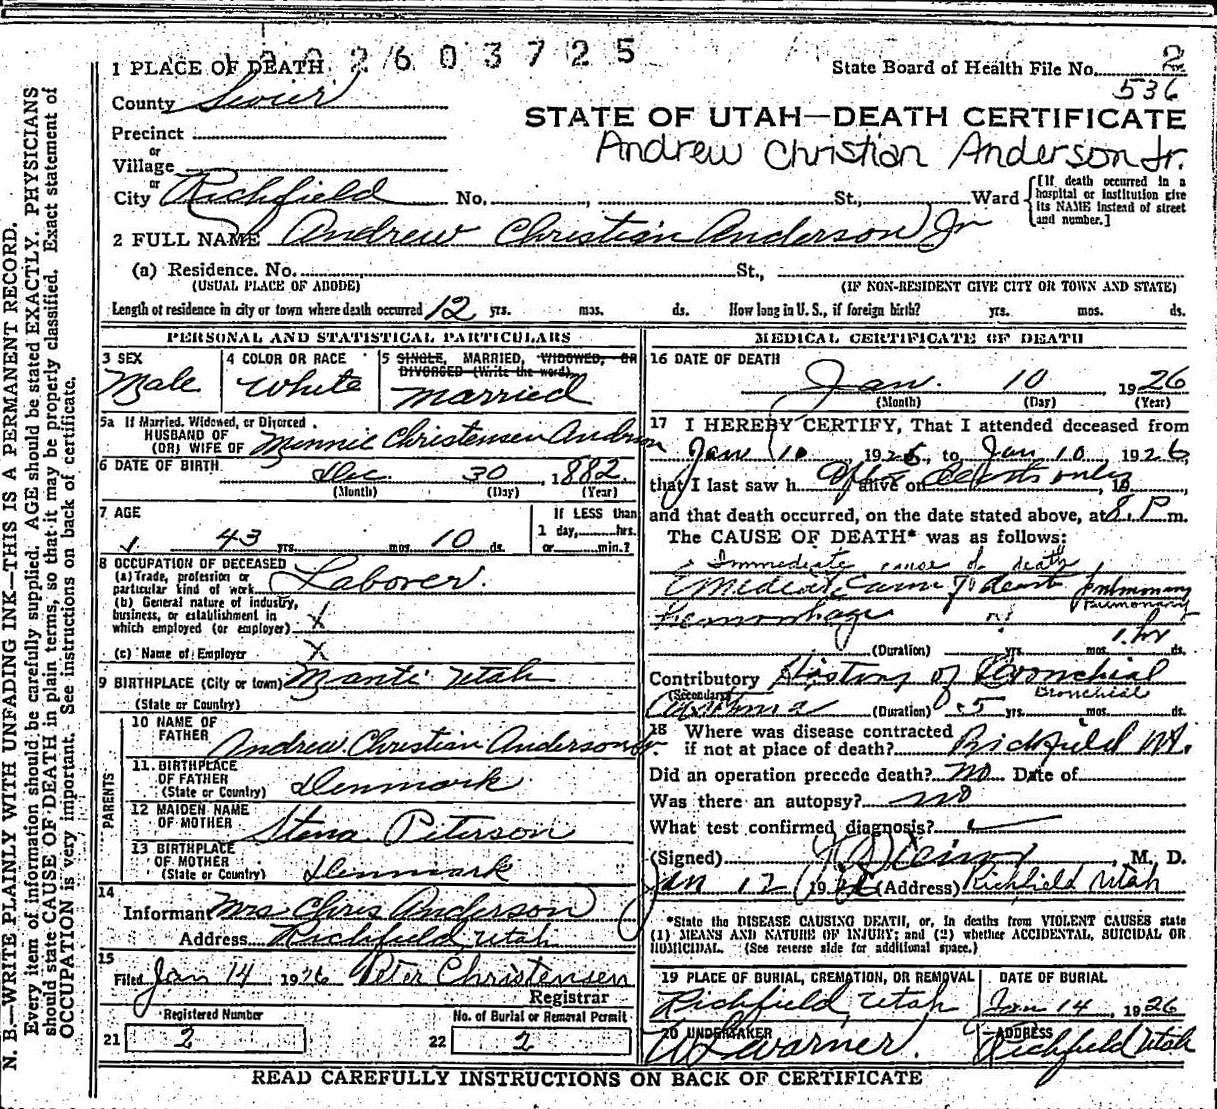 2603725
1 PLACE OF DEATH
State Board of Health File No. 2
536
County Sevier
STATE OF UTAH—DEATH CERTIFICATE
Precinct
or
Andrew Christian Anderson Jr.
Village
or
City Richfield No. , St., Ward
[If death occurred in a hospital or institution give its NAME instead of street and number.]
2 FULL NAME Andrew Christian Anderson Jr
(a) Residence. No. St.,
(USUAL PLACE OF ABODE) (IF NON-RESIDENT GIVE CITY OR TOWN AND STATE)
Length of residence in city or town where death occurred 12 yrs. mos. ds. How long in U. S., if foreign birth? yrs. mos. ds.
PERSONAL AND STATISTICAL PARTICULARS
3 SEX
Male
4 COLOR OR RACE
White
5 SINGLE, MARRIED, WIDOWED, OR
DIVORCED (Write the word)
Married
5a If Married, Widowed, or Divorced
HUSBAND OF
(OR) WIFE OF Minnie Christensen
6 DATE OF BIRTH Dec. 30, 1882.
(Month) (Day) (Year)
7 AGE
43 yrs. mos. 10 ds.
If LESS than
1 day, hrs.
or min.?
8 OCCUPATION OF DECEASED
(a) Trade, profession or
particular kind of work Laborer.
(b) General nature of industry,
business, or establishment in
which employed (or employer) X
(c) Name of Employer X
9 BIRTHPLACE (City or town) Manti Utah
(State or Country)
PARENTS
10 NAME OF
FATHER Andrew Christian Anderson Sr.
11 BIRTHPLACE
OF FATHER
(State or Country) Denmark
12 MAIDEN NAME
OF MOTHER Stena Peterson
13 BIRTHPLACE
OF MOTHER
(State or Country) Denmark
14
Informant Mrs Chris Anderson
Address Richfield Utah
15
Filed Jan 14, 1926 Peter Christensen
Registrar
Registered Number
21 2
No. of Burial or Removal Permit
22 2
MEDICAL CERTIFICATE OF DEATH
16 DATE OF DEATH
Jan. 10 1926
(Month) (Day) (Year)
17 I HEREBY CERTIFY, That I attended deceased from
Jan 10, 1926, to Jan 10, 1926,
that I last saw h alive on after death only, 19
and that death occurred, on the date stated above, at 8 P. m.
The CAUSE OF DEATH* was as follows:
Immediate cause of death
pulmonary
Pulmonary
hemorrhage
1 hr
(Duration) yrs. mos. ds.
Contributory History of Bronchial
(Secondary) Bronchial
Asthma (Duration) 5 yrs. mos. ds.
18 Where was disease contracted
if not at place of death? Richfield Ut.
Did an operation precede death? no Date of
Was there an autopsy? no
What test confirmed diagnosis?
(Signed) , M. D.
Jan 12, 19 (Address) Richfield Utah
*State the DISEASE CAUSING DEATH, or, in deaths from VIOLENT CAUSES state
(1) MEANS AND NATURE OF INJURY; and (2) whether ACCIDENTAL, SUICIDAL OR
HOMICIDAL. (See reverse side for additional space.)
19 PLACE OF BURIAL, CREMATION, OR REMOVAL
Richfield, Utah
DATE OF BURIAL
Jan 14, 1926
20 UNDERTAKER
Warner.
ADDRESS
Richfield Utah
READ CAREFULLY INSTRUCTIONS ON BACK OF CERTIFICATE
N. B.—WRITE PLAINLY WITH UNFADING INK—THIS IS A PERMANENT RECORD.
Every item of information should be carefully supplied. AGE should be stated EXACTLY. PHYSICIANS
should state CAUSE OF DEATH in plain terms, so that it may be properly classified. Exact statement of
OCCUPATION is very important. See instructions on back of certificate.